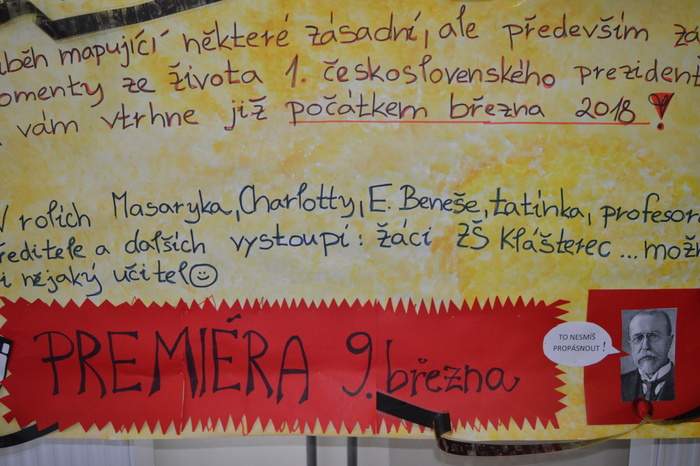 íběh mapující některé zásadní, ale především zá
omenty ze života 1. československého prezident
vám vtrhne již počátkem března 2018!
V rolích Masaryka, Charlotty, E. Beneše, tatínka, profesor
ředitele a dalších vystoupí: žáci ZŠ Klášterec ... možn
i nějaký učitel☺
PREMIÉRA 9. března
TO NESMÍŠ
PROPÁSNOUT!